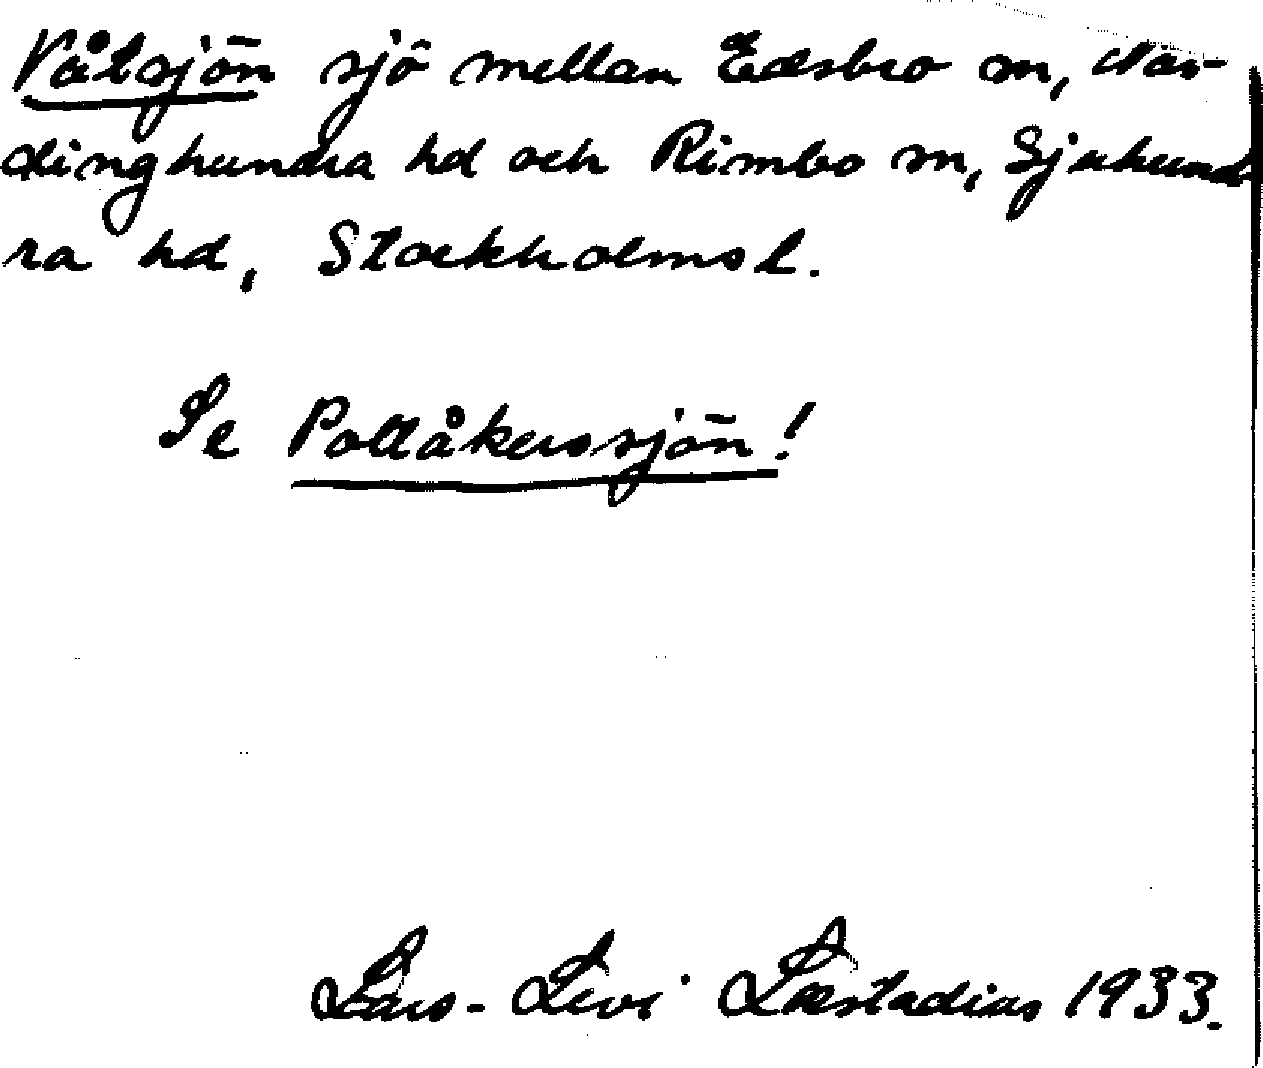 Våtsjön sjö mellan Edsbro sn, När-
dinghundra hd och Rimbo sn, Sjuhund
ra hd, Stockholms l.
Se Pollåkerssjön!
Lars-Levi Læstadius 1933.